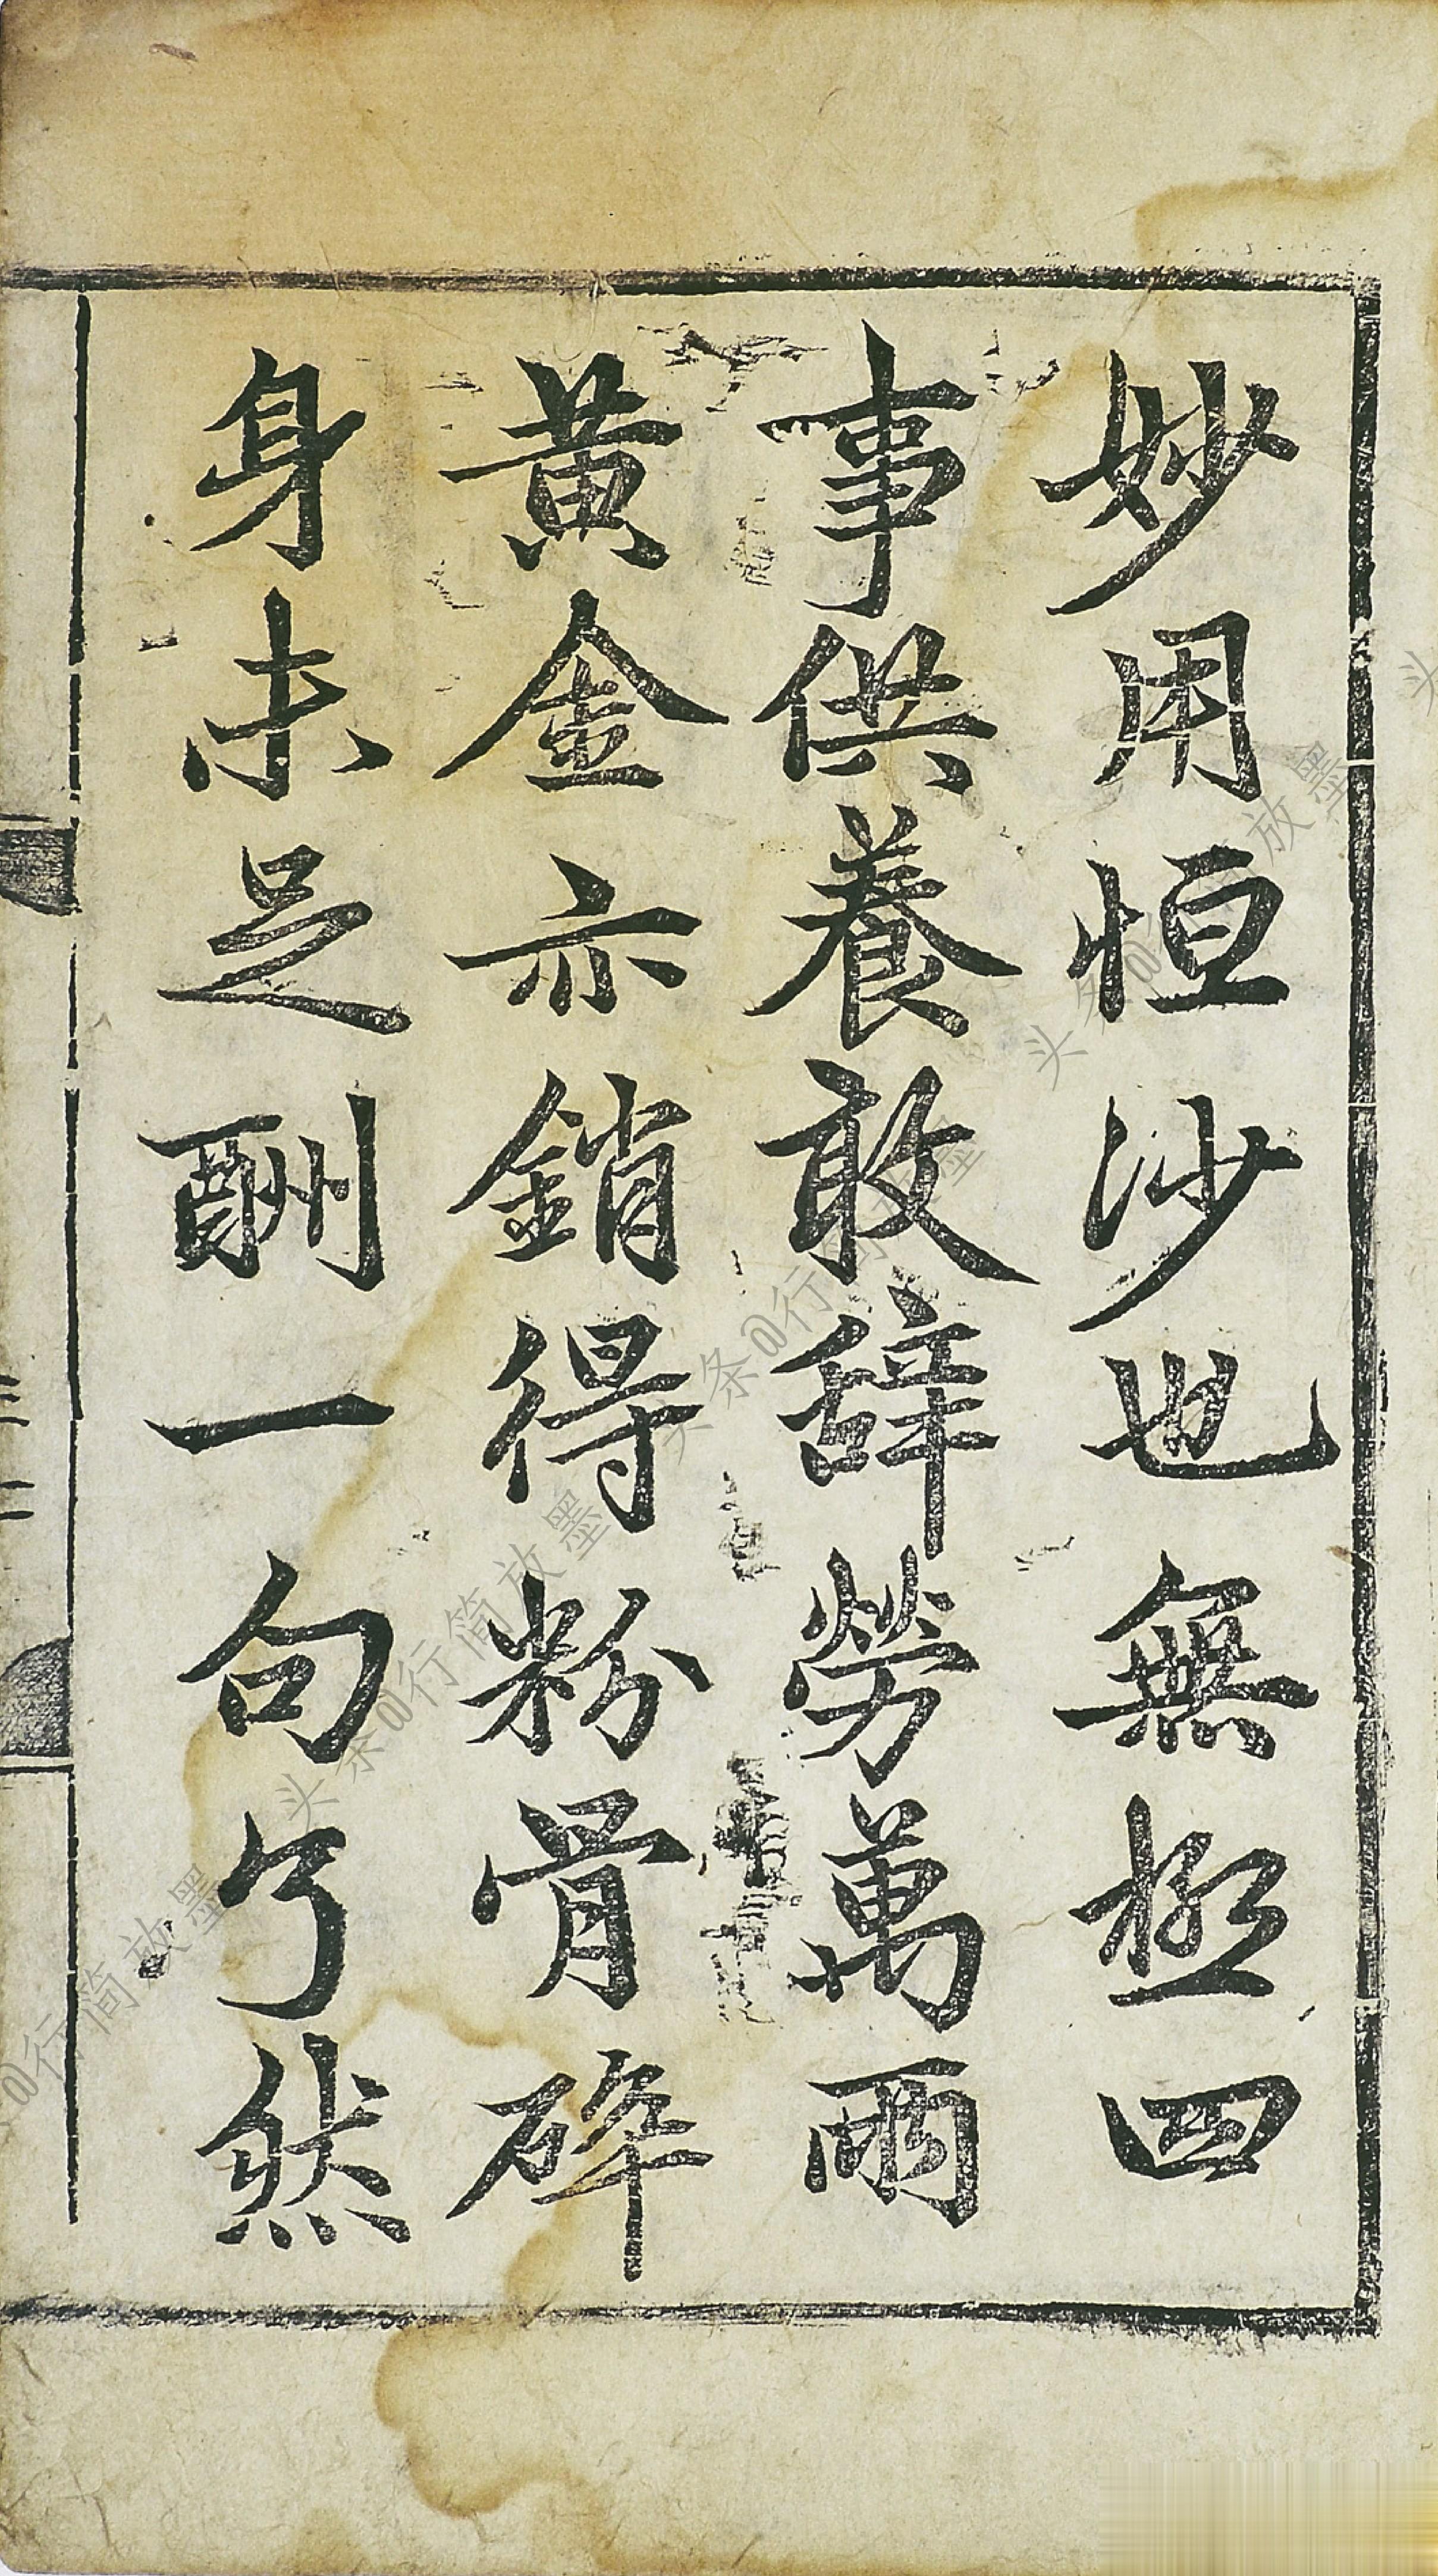 妙用恒沙也無極四
事供養敢辞勞萬兩
黄金亦銷得粉骨碎
身未足酬一句了然
头条@行简放墨
头条@行简放墨
头条@行简放墨
@行简放墨
头